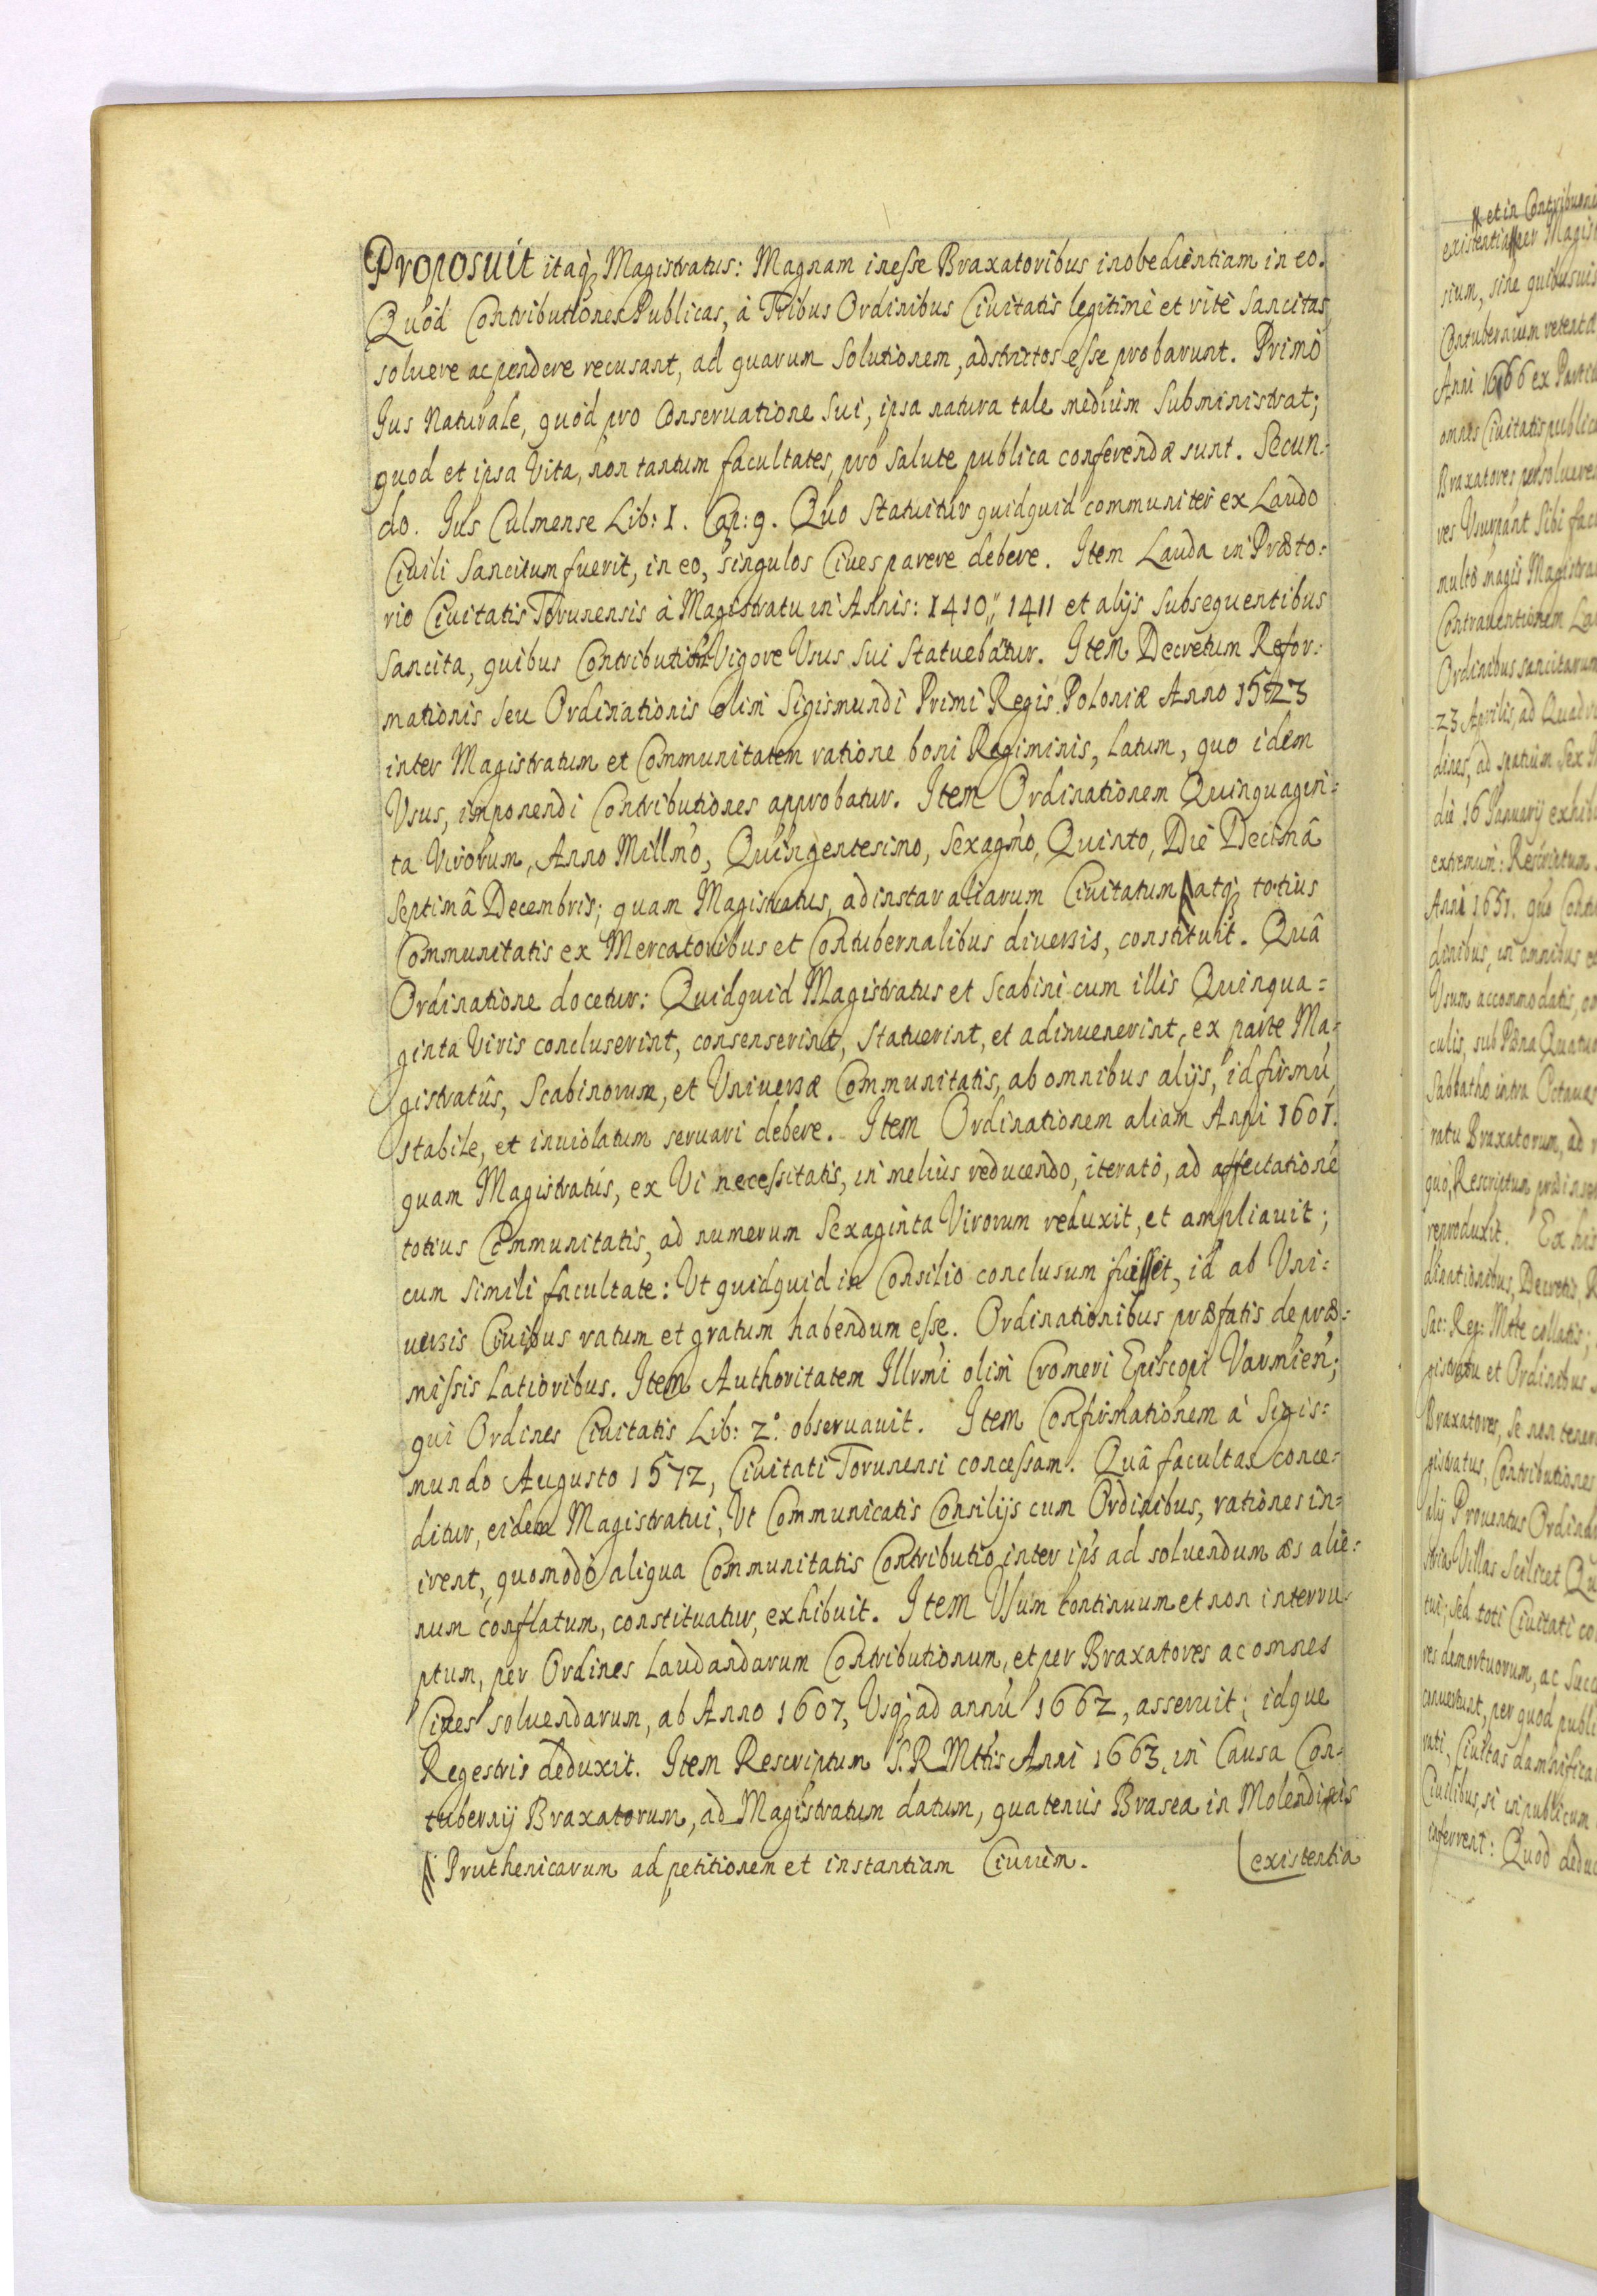 Proposuit itaq; Magistratus: Magnam inesse Braxatoribus inobedientiam in eo.
Quòd Contributiones Publicas, à Tribus Ordinibus Ciuitatis legitimè et ritè Sancitas
soluere ac pendere recusant, ad quarum Solutionem, adstrictos esse probarunt. Primò
Jus Naturale, quòd pro Conseruatione Sui, ipsa natura tale medium Subministrat;
quod et ipsa Vita, non tantum facultates, pro Salute publica conferendæ sunt. Secun-
do. Jus Culmense Lib: 1. Cap: 9. Quo Statuitur quidquid communiter ex Laudo
Ciuili Sancitum fuerit, in eo, singulos Ciues parere debere. Item Lauda in Præto-
rio Ciuitatis Torunensis à Magistratu in Annis: 1410,, 1411 et alijs Subsequentibus
Sancita, quibus Contribution Vigore Usus Sui Statuebantur. Item Decretum Refor-
mationis Seu Ordinationis olim Sigismundi Primi Regis Poloniæ Anno 1523
inter Magistratum et Communitatem ratione boni Regiminis, Latum, quo idem
Usus, imponendi Contributiones approbatur. Item Ordinationem Quinquagin-
ta Virorum, Anno Millmo, Quingentesimo, Sexagmo, Quinto, Die Decimâ
Septimâ Decembris; quam Magistratus, ad instar aliarum Ciuitatum // atq; totius
Communitatis ex Mercatoribus et Contubernalibus diuersis, constituit. Quâ
Ordinatione docetur: Quidquid Magistratus et Scabini cum illis Quinqua=
ginta Viris concluserint, consenserint, Statuerint, et adinuenerint, ex parte Ma-
gistratûs, Scabinorum, et Uniuersæ Communitatis, ab omnibus alijs, id firmũ,
stabile, et inuiolatum seruari debere. Item Ordinationem aliam Anni 1601.
quam Magistratus, ex Vi necessitatis, in melius reducendo, iteratò, ad affectationẽ
totius Communitatis, ad numerum Sexaginta Virorum reduxit, et ampliauit;
cum Simili facultate: Ut quidquid in Consilio conclusum fuisset, id ab Uni=
uersis Ciuibus ratum et gratum habendum esse. Ordinationibus præfatis de præ=
missis Latioribus. Item Authoritatem Illrmi olim Cromeri Episcopi Varmien;
qui Ordines Ciuitatis Lib: 2.° obseruauit. Item Confirmationem à Sigis=
mundo Augusto 1572, Ciuitati Torunensi concessam. Quâ facultas conce-
ditur, eidem Magistratui, Ut Communicatis Consilijs cum Ordinibus, rationes in=
irent, quomodò aliqua Communitatis Contributio inter ips ad soluendum æs alie=
num conflatum, constituatur, exhibuit. Item Usum continuum et non interru-
ptum, per Ordines Laudandarum Contributionum, et per Braxatores ac omnes
Ciues soluendarum, ab Anno 1607, Usq; ad annũ 1662, asseruit; idque
Regestris deduxit. Item Rescriptum S.R Mttis Anni 1663, in Causa Con-
tubernij Braxatorum, ad Magistratum datum, quatenus Brasea in Molendinis
// Pruthenicarum ad petitionem et instantiam Ciuium. existentia
// et in Contribuen
existentia // per Magis
sium, sine quibusuis
Contubernium
Anni 1666 ex
omnes Ciuitatis public
Braxatores persoluere
res Usurpant Sibi fac
multò magis Magistra
Contrauentionem La
Ordinibus sancitarum
23 Aprilis, ad Quadr
dines, ad spatium Sex
die 16 Januarij exhib
extremum: Rescriptum
Anni 1651. quo
dinibus, in omnibus et
Usum accommodatis,
culis, sub Pœna Quatuo
Sabbatho intra Octauas
ratu Braxatorum, ad
quò, Rescriptum
reproduxit. Ex his
dinationibus, Decretis, R
Sac: Reg: Mtte collatis;
gistratu et Ordinibus
Braxatores, Se non tener
gistratus, Contributiones
alij Prouentus Ordina
Villas Scilicet Qu
tui; Sed toti Ciuitati co
res demortuorum, ac
conuertunt, per quod publi
rati, Ciuitas damnifica
Ciuilibus, si in publicum
inferrent: Quod deduc